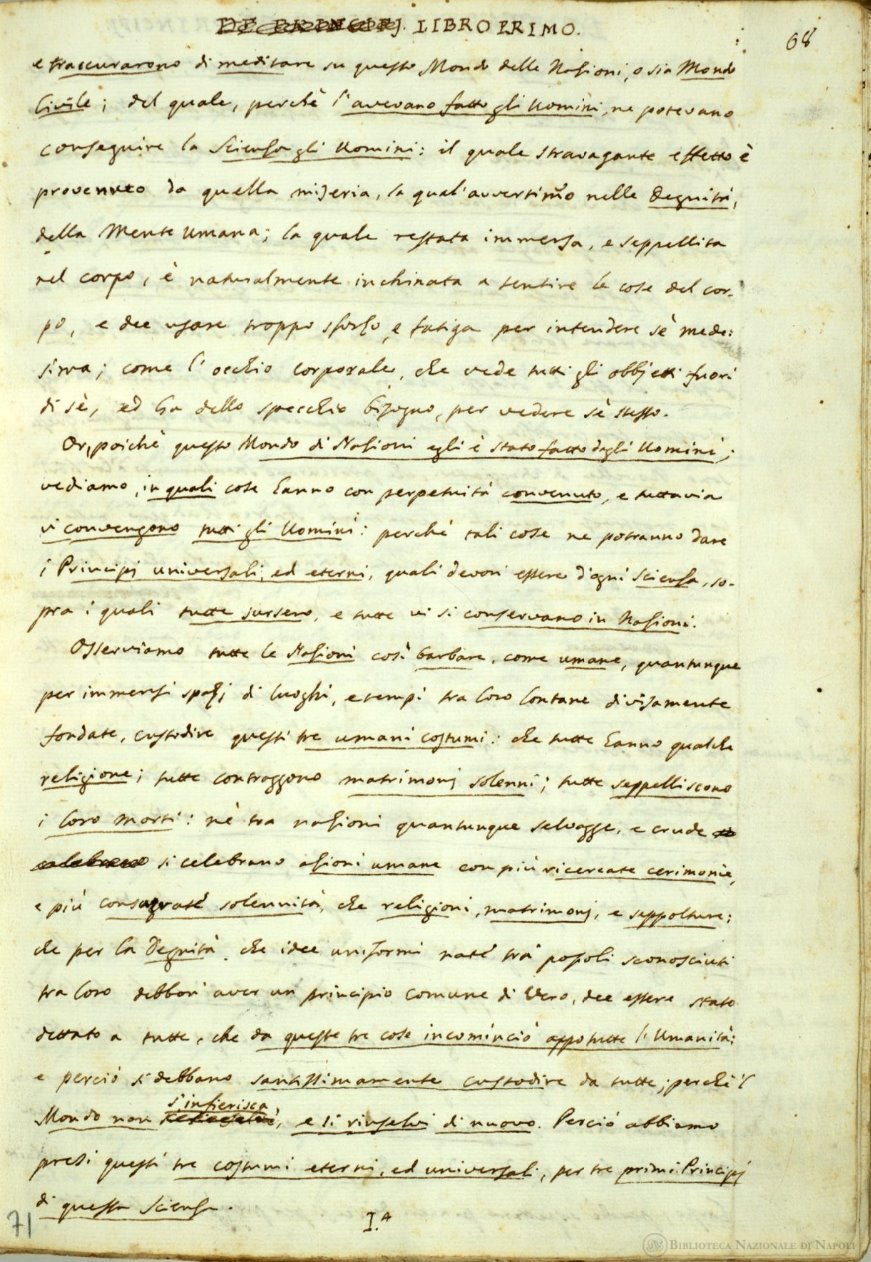 DE PRINCIPJ. LIBRO PRIMO.
68
e traccurarono di meditare su questo Mondo delle Nazioni, o sia Mondo
Civile; del quale, perchè l'avevano fatto gli Uomini, ne potevano
conseguire la Scienza gli Uomini: il quale stravagante effetto è
provenuto da quella miseria, la qual'avvertimmo nelle Degnità,
della Mente Umana; la quale restata immersa, e seppellita
nel corpo, è naturalmente inchinata a sentire le cose del cor-
po, e dee usare troppo sforzo, e fatiga per intendere sè mede:
sima; come l'occhio corporale, che vede tutti gli obbjetti fuori
di sè, ed ha dello specchio bisogno, per vedere sè stesso.
Or, poichè questo Mondo di Nazioni egli è stato fatto dagli Uomini;
vediamo, in quali cose hanno con perpetuità convenuto, e tuttavia
vi convengono tutti gli Uomini: perchè tali cose ne potranno dare
i Principj universali, ed eterni, quali devon essere d'ogni Scienza, so-
pra i quali tutte sursero, e tutte vi si conservano in Nazioni.
Osserviamo tutte le Nazioni così barbare, come umane, quantunque
per immensi spazj di luoghi, e tempi tra loro lontane divisamente
fondate, custodire questi tre umani costumi: che tutte hanno qualche
religione; tutte contraggono matrimonj solenni; tutte seppelliscono
i loro morti: nè tra nazioni quantunque selvagge, e crude
si celebrano azioni umane con più ricercate cerimonie,
e più consagrate solennità, che religioni, matrimonj, e seppolture:
che per la Degnità, che idee uniformi nate tra popoli sconosciuti
tra loro debbon aver un principio comune di vero, dee essere stato
dettato a tutte, che da queste tre cose incominciò appo tutte l'Umanità:
e perciò si debbano santissimamente custodire da tutte; perchè 'l
Mondo non s'infierisca, e si rinselvi di nuovo. Perciò abbiamo
presi questi tre costumi eterni, ed universali, per tre primi Principj
di questa Scienza.
71
I.A
BIBLIOTECA NAZIONALE DI NAPOLI